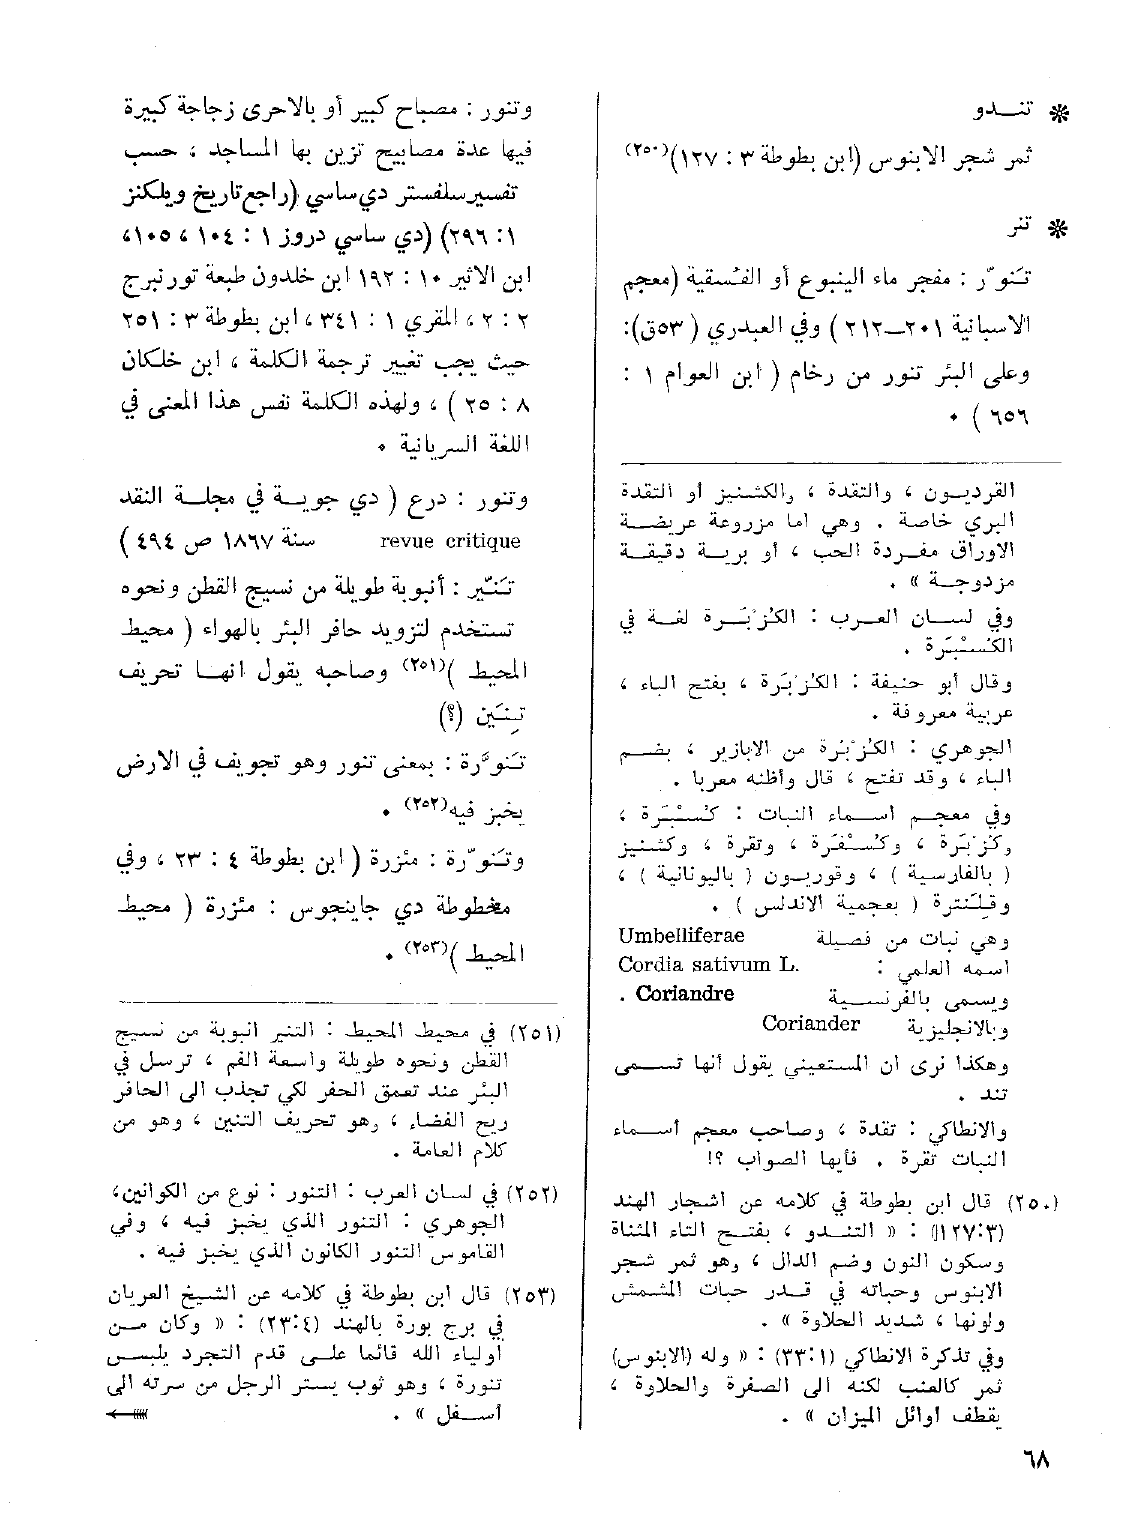 ❊ تنــدو
ثمر شجر الابنوس (ابن بطوطة ٣ : ١٢٧)(٢٥٠)
❊ تنر
تَنوّر : مفجر ماء الينبوع أو الفُسقية (معجم
الاسبانية ٢٠١ــ٢١٢) وفي العبدري ( ٥٣ق):
وعلى البئر تنور من رخام ( ابن العوام ١ :
٦٥٦ ) ٠
القرديــون ، والتقدة ، والكشنيز أو التقدة
البري خاصة . وهي اما مزروعة عريضــة
الاوراق مفــردة الحب ، أو بريــة دقيقــة
مزدوجــة » .
وفي لســان العــرب : الكُزْبَرة لغــة في
الكُسْبَرة .
وقال أبو حنيفة : الكُزْبَرة ، بفتح الباء ،
عربية معروفة .
الجوهري : الكُزْبُرة من الابازير ، بضــم
الباء ، وقد تفتح ، قال وأظنه معربا .
وفي معجــم اســماء النبات : كُسْبَرة ،
وكزبَرة ، وكُسْفَرة ، وتقرة ، وكشنيز
( بالفارسية ) ، وقوريــون ( باليونانية ) ،
وقلَنترة ( بعجمية الاندلس ) .
وهي نبات من فصيلة Umbelliferae
اسمه العلمي : Cordia sativum L.
ويسمى بالفرنســية Coriandre .
وبالانجليزية Coriander
وهكذا نرى ان المستعيني يقول أنها تســمى
تند .
والانطاكي : تقدة ، وصاحب معجم أســماء
النبات تقرة . فأيها الصواب ؟!
(٢٥٠) قال ابن بطوطة في كلامه عن أشجار الهند
(٣:١٢٧) : « التنــدو ، بفتــح التاء المثناة
وسكون النون وضم الدال ، وهو ثمر شجر
الابنوس وحباته في قــدر حبات المشمش
ولونها ، شديد الحلاوة » .
وفي تذكرة الانطاكي (٣٣:١) : « وله (الابنوس)
ثمر كالعنب لكنه الى الصفرة والحلاوة ،
يقطف أوائل الميزان » .
وتنور : مصباح كبير أو بالاحرى زجاجة كبيرة
فيها عدة مصابيح تزين بها المساجد ، حسب
تفسير سلفستر دي ساسي (راجع تاريخ ويلكنز
١: ٢٩٦) (دي ساسي دروز ١ : ١٠٤ ، ١٠٥،
ابن الاثير ١٠ : ١٩٢ ابن خلدون طبعة تورنبرج
٢ : ٢ ، المقري ١ : ٣٤١ ، ابن بطوطة ٣ : ٢٥١
حيث يجب تغيير ترجمة الكلمة ، ابن خلكان
٨ : ٢٥ ) ، ولهذه الكلمة نفس هذا المعنى في
اللغة السريانية ٠
وتنور : درع ( دي جويــة في مجلــة النقد
revue critique سنة ١٨٦٧ ص ٤٩٤ )
تَنّير : أنبوبة طويلة من نسيج القطن ونحوه
تستخدم لتزويد حافر البئر بالهواء ( محيط
المحيط )(٢٥١) وصاحبه يقول انهــا تحريف
تِنّين (؟)
تَنوّرة : بمعنى تنور وهو تجويف في الارض
يخبز فيه(٢٥٢) ٠
وتَنوّرة : مئزرة ( ابن بطوطة ٤ : ٢٣ ، وفي
مخطوطة دي جاينجوس : مئزرة ( محيط
المحيط )(٢٥٣) ٠
(٢٥١) في محيط المحيط : التنير انبوبة من نسيج
القطن ونحوه طويلة واسعة الفم ، ترسل في
البئر عند تعمق الحفر لكي تجذب الى الحافر
ريح الفضاء ، وهو تحريف التنين ، وهو من
كلام العامة .
(٢٥٢) في لسان العرب : التنور : نوع من الكوانين،
الجوهري : التنور الذي يخبز فيه ، وفي
القاموس التنور الكانون الذي يخبز فيه .
(٢٥٣) قال ابن بطوطة في كلامه عن الشيخ العريان
في برج بورة بالهند (٢٣:٤) : « وكان مــن
أولياء الله قائما علــى قدم التجرد يلبــس
تنورة ، وهو ثوب يستر الرجل من سرته الى
أســفل » .
٦٨